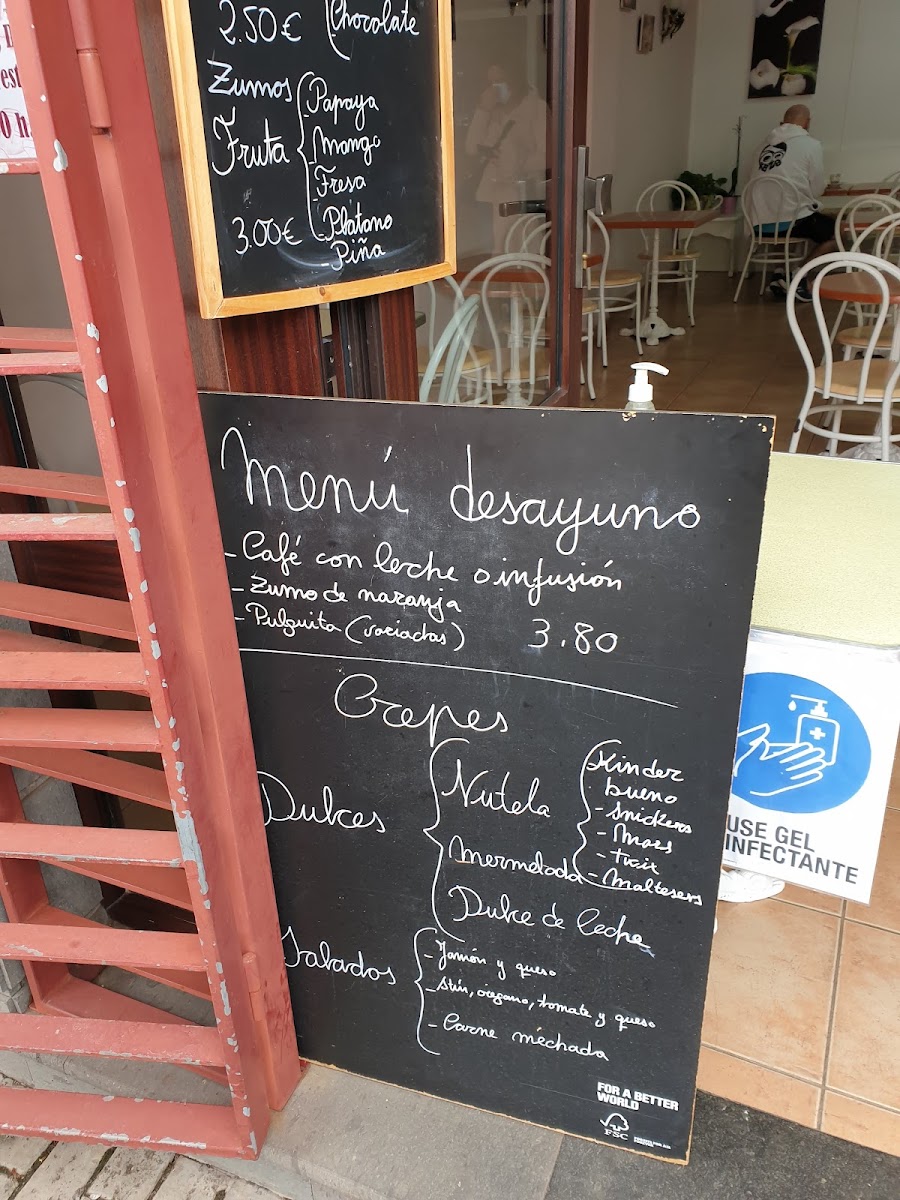 est
0 h.
2.50€
Chocolate
Zumos
Fruta
3.00€
- Papaya
- Mango
- Fresa
- Platano
Piña
Menú desayuno
- Café con leche o infusión
- Zumo de naranja
- Pulguita (variadas) 3.80
Crepes
Dulces
Nutela
Mermelada
Dulce de leche
Kinder
bueno
- Snickers
- Mars
- Twix
- Maltesers
Salados
- Jamón y queso
- Atún, oregano, tomate y queso
- Carne mechada
FOR A BETTER
WORLD
FSC
USE GEL
INFECTANTE